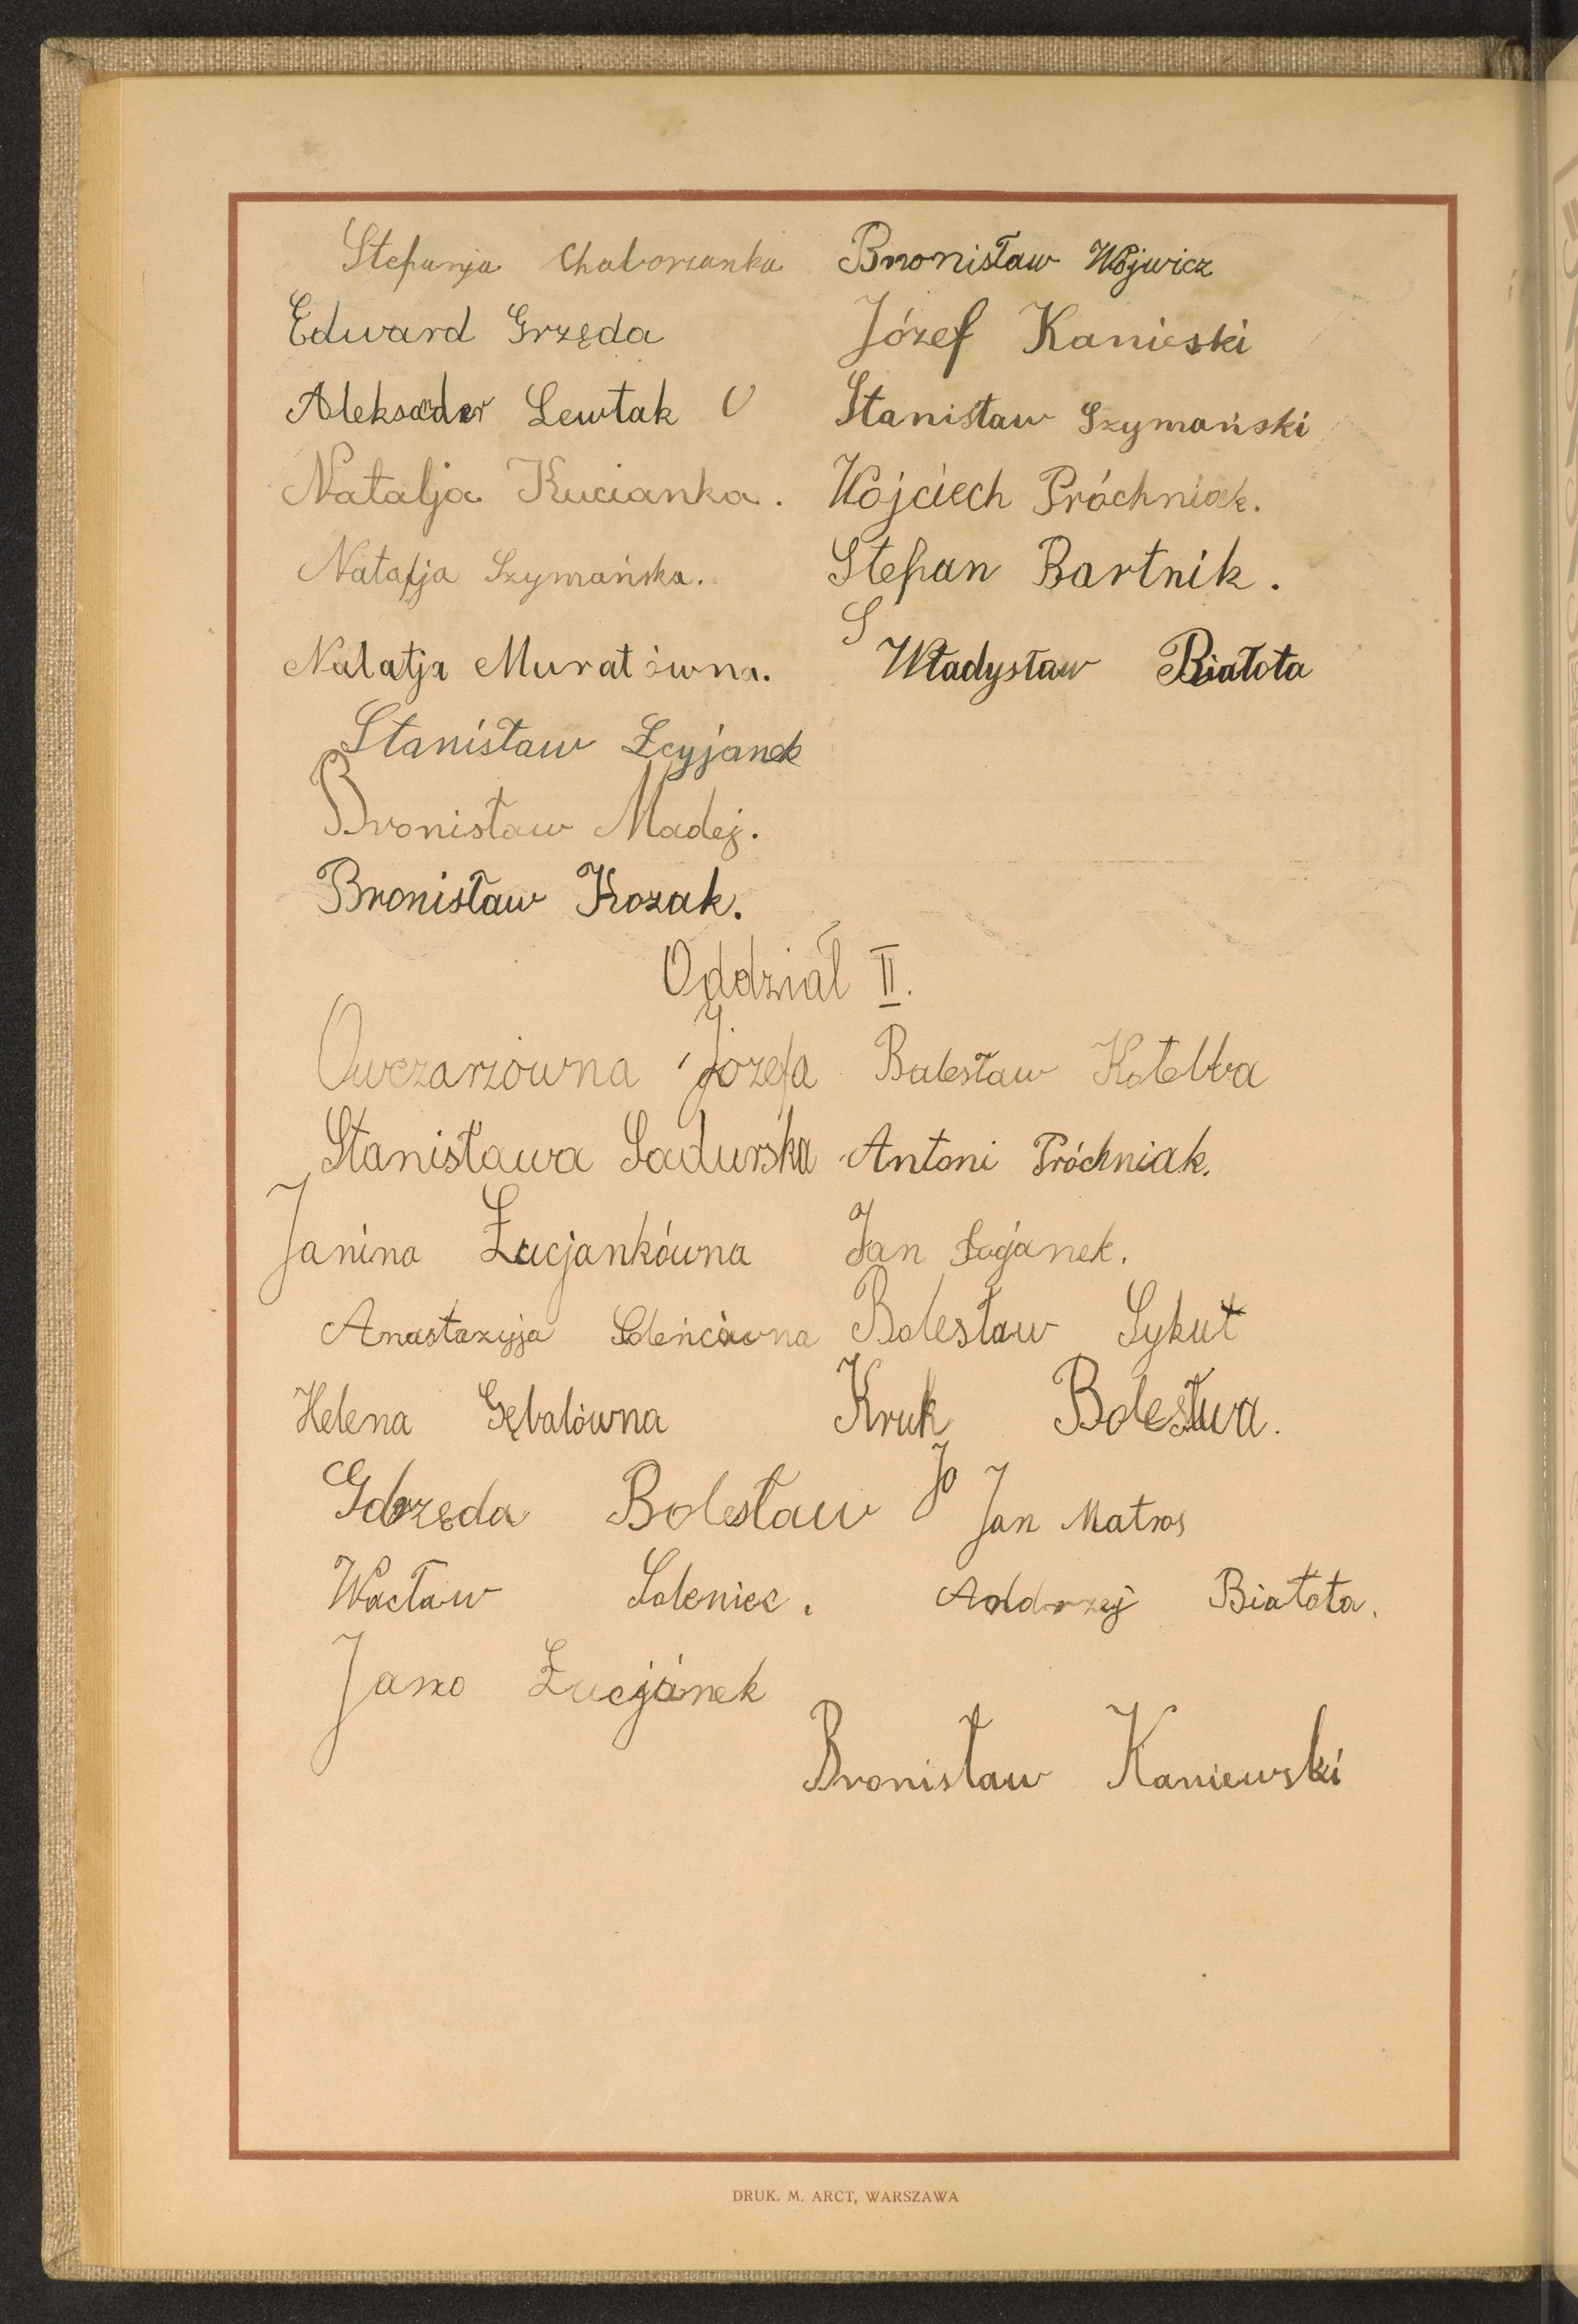 Stefanja Chaborzanka Bronisław Wójwicz
Edward Grzęda Józef Kanieski
Aleksander Lewtak U Stanisław Szymański
Natalja Kucianka. Wojciech Próchniak.
Natalja Szymańska. Stefan Bartnik.
S
Nalatja Muratówna. Władysław Białota
Stanisław Łcyjanek
Bronisław Madej.
Bronisław Kozak.
Oddział II.
Owczarzówna Józefa Bolesław Kotełba
Stanisława Sadurska Antoni Próchniak.
Janina Łucjankówna Jan Łucjanek.
Anastazyja Soleńcówna Bolesław Sykut
Helena Gębalówna Kruk Bolesłwa.
Jo
Gdrzęda Bolesław Jan Matras
Wacław Soleniec. Andrzej Białota.
Jano Łucjánek
Bronisław Kaniewski
DRUK. M. ARCT, WARSZAWA